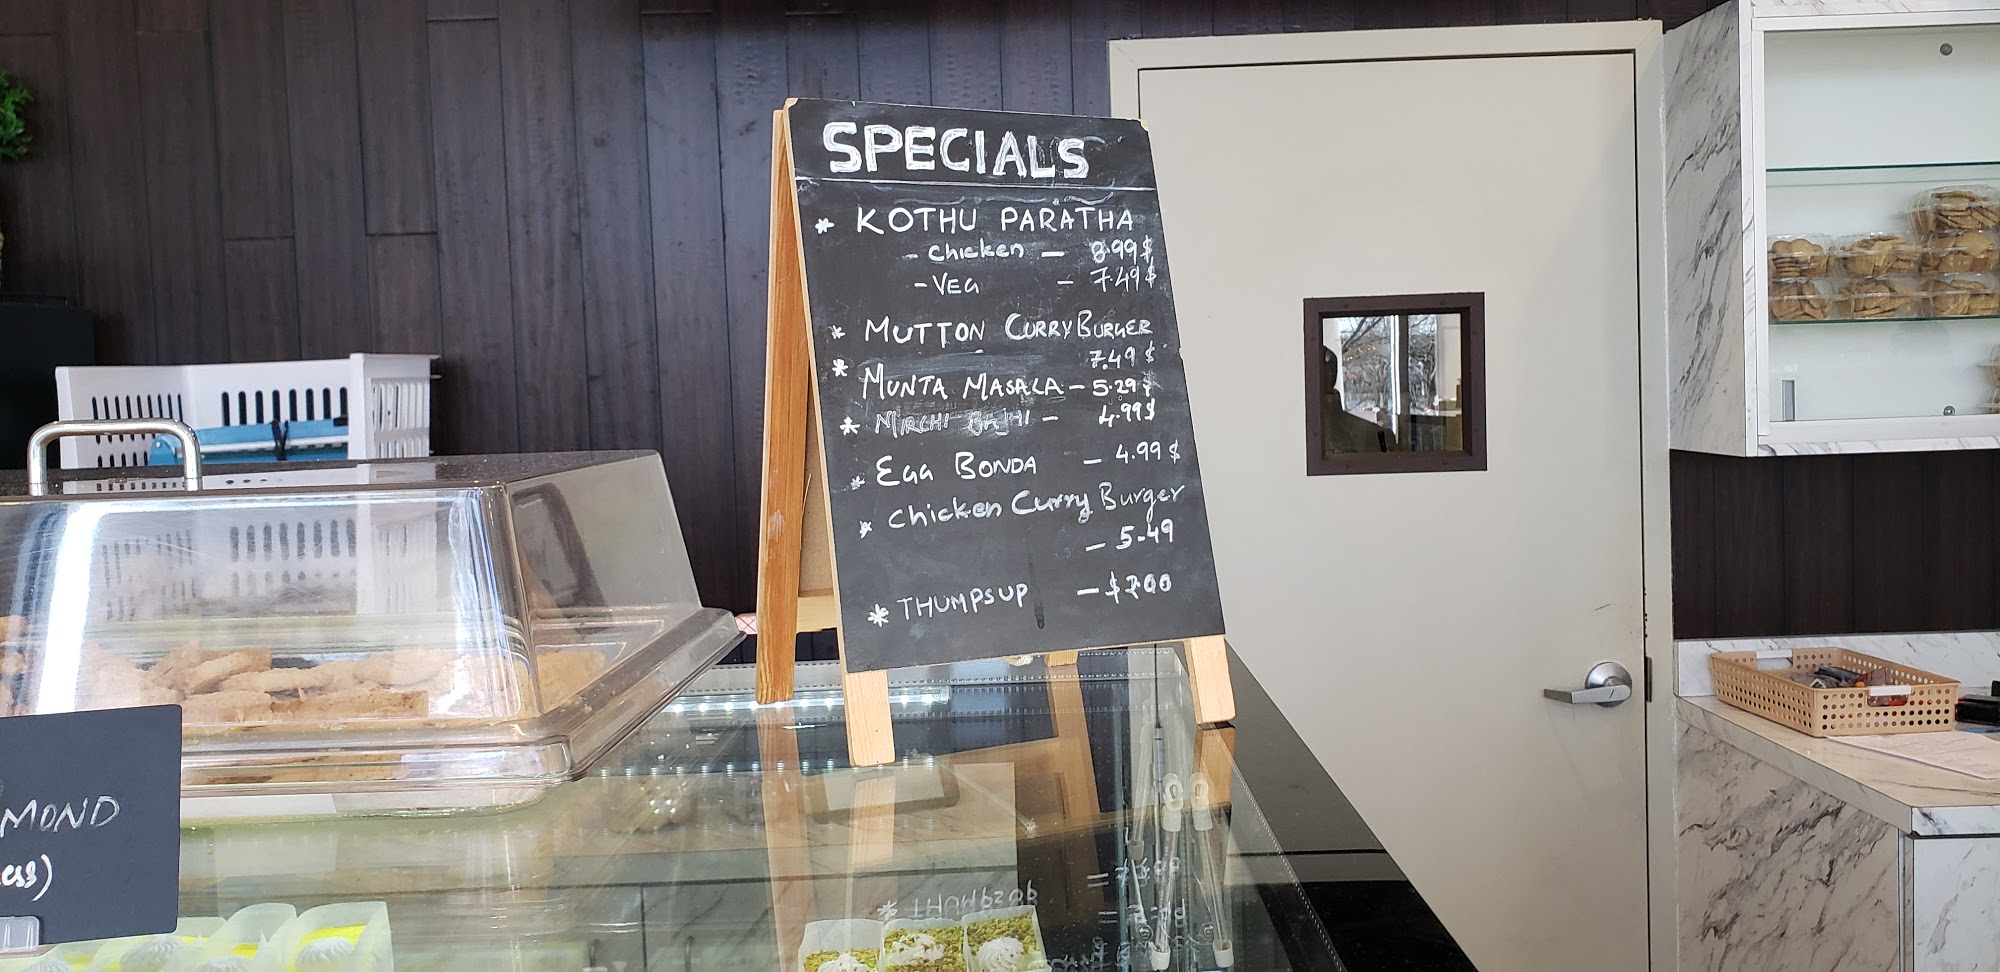 SPECIALS
* KOTHU PARATHA
- Chicken — 8.99$
- VEG - 7.49$
* MUTTON CURRY BURGER
7.49 $
* MUNTA MASALA - 5.29$
* MIRCHI BAJHI - 4.99$
* EGG BONDA - 4.99$
* Chicken Curry Burger
- 5.49
* THUMPSUP - $2.00
MOND
ess)